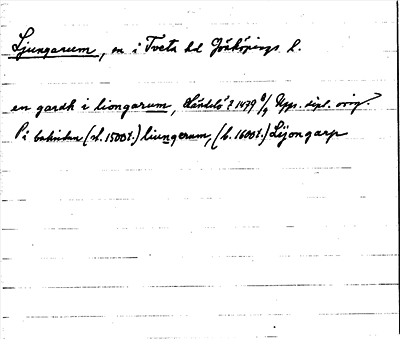 Ljungarum, sn i Tveta hd Jönköpings l.
en gardh i liongarum, 1479 6/9 Upps. dipl. orig.
På baksidan (sl. 1500t.) liungerum, (b. 1600t.) Lijongarp